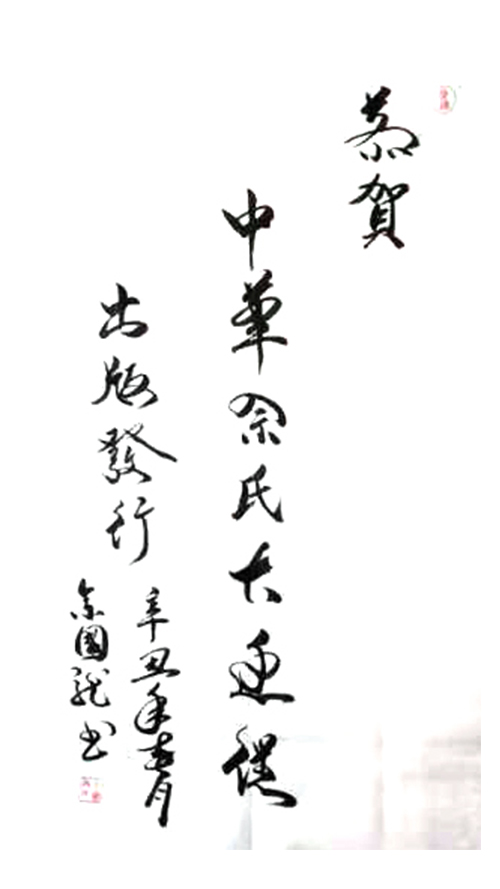 恭賀
中華佘氏大通譜
出版發行
辛丑年春月
佘國龍書